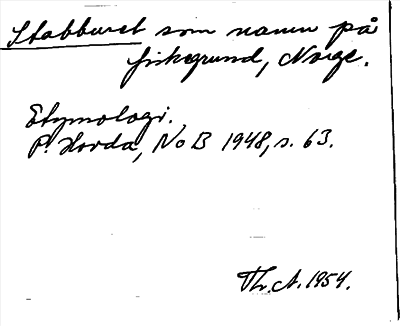 Stabburet som namn på
fiskegrund, Norge.
Etymologi.
P. Hovda, NoB 1948, s. 63.
Th. A. 1954.